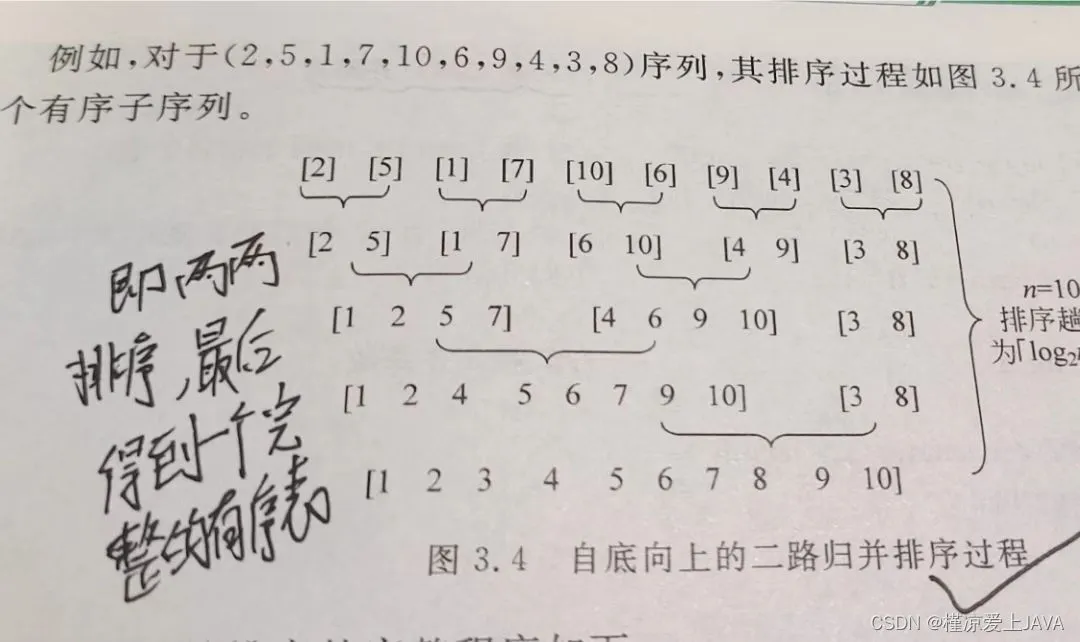 例如,对于(2,5,1,7,10,6,9,4,3,8)序列,其排序过程如图3.4所
个有序子序列。
[2] [5] [1] [7] [10] [6] [9] [4] [3] [8]
[2 5] [1 7] [6 10] [4 9] [3 8]
[1 2 5 7] [4 6 9 10] [3 8]
[1 2 4 5 6 7 9 10] [3 8]
[1 2 3 4 5 6 7 8 9 10]
n=10
排序趟
为⌈log₂n
即两两
排序,最后
得到一个完
整的有序表
图3.4 自底向上的二路归并排序过程
CSDN @槿凉爱上JAVA